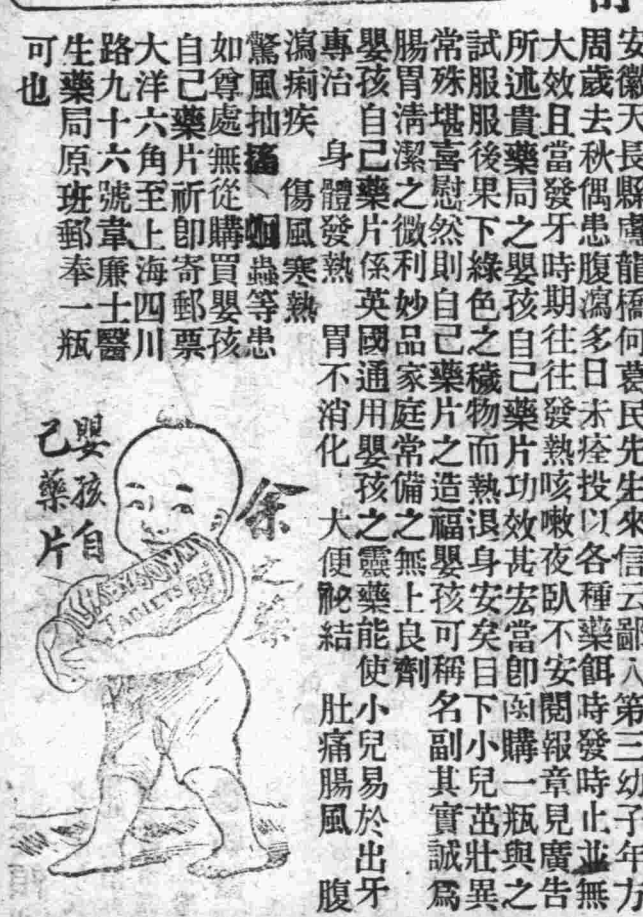 安徽天長縣盧龍橋何葛民先生來信云鄙人第三幼子年方
周歲去秋偶患腹瀉多日未痊投以各種藥餌時發時止並無
大效且當發牙時期往往發熱咳嗽夜臥不安閱報章見廣告
所述貴藥局之嬰孩自己藥片功效甚宏當卽函購一瓶與之
試服服後果下綠色之穢物而熱退身安矣目下小兒茁壯異
常殊堪喜慰然則自己藥片之造福嬰孩可稱名副其實誠爲
腸胃淸潔之微利妙品家庭常備之無上良劑
嬰孩自己藥片係英國通用嬰孩之靈藥能使小兒易於出牙
專治 身體發熱 胃不消化 大便祕結 肚痛腸風 腹
瀉痢疾 傷風寒熱
驚風抽搐、蛔蟲等患
如尊處無從購買嬰孩
自己藥片祈卽寄郵票
大洋六角至上海四川
路九十六號韋廉士醫
生藥局原班郵奉一瓶
可也
余之藥
嬰孩自
己藥片
BABY'S OWN
TABLETS